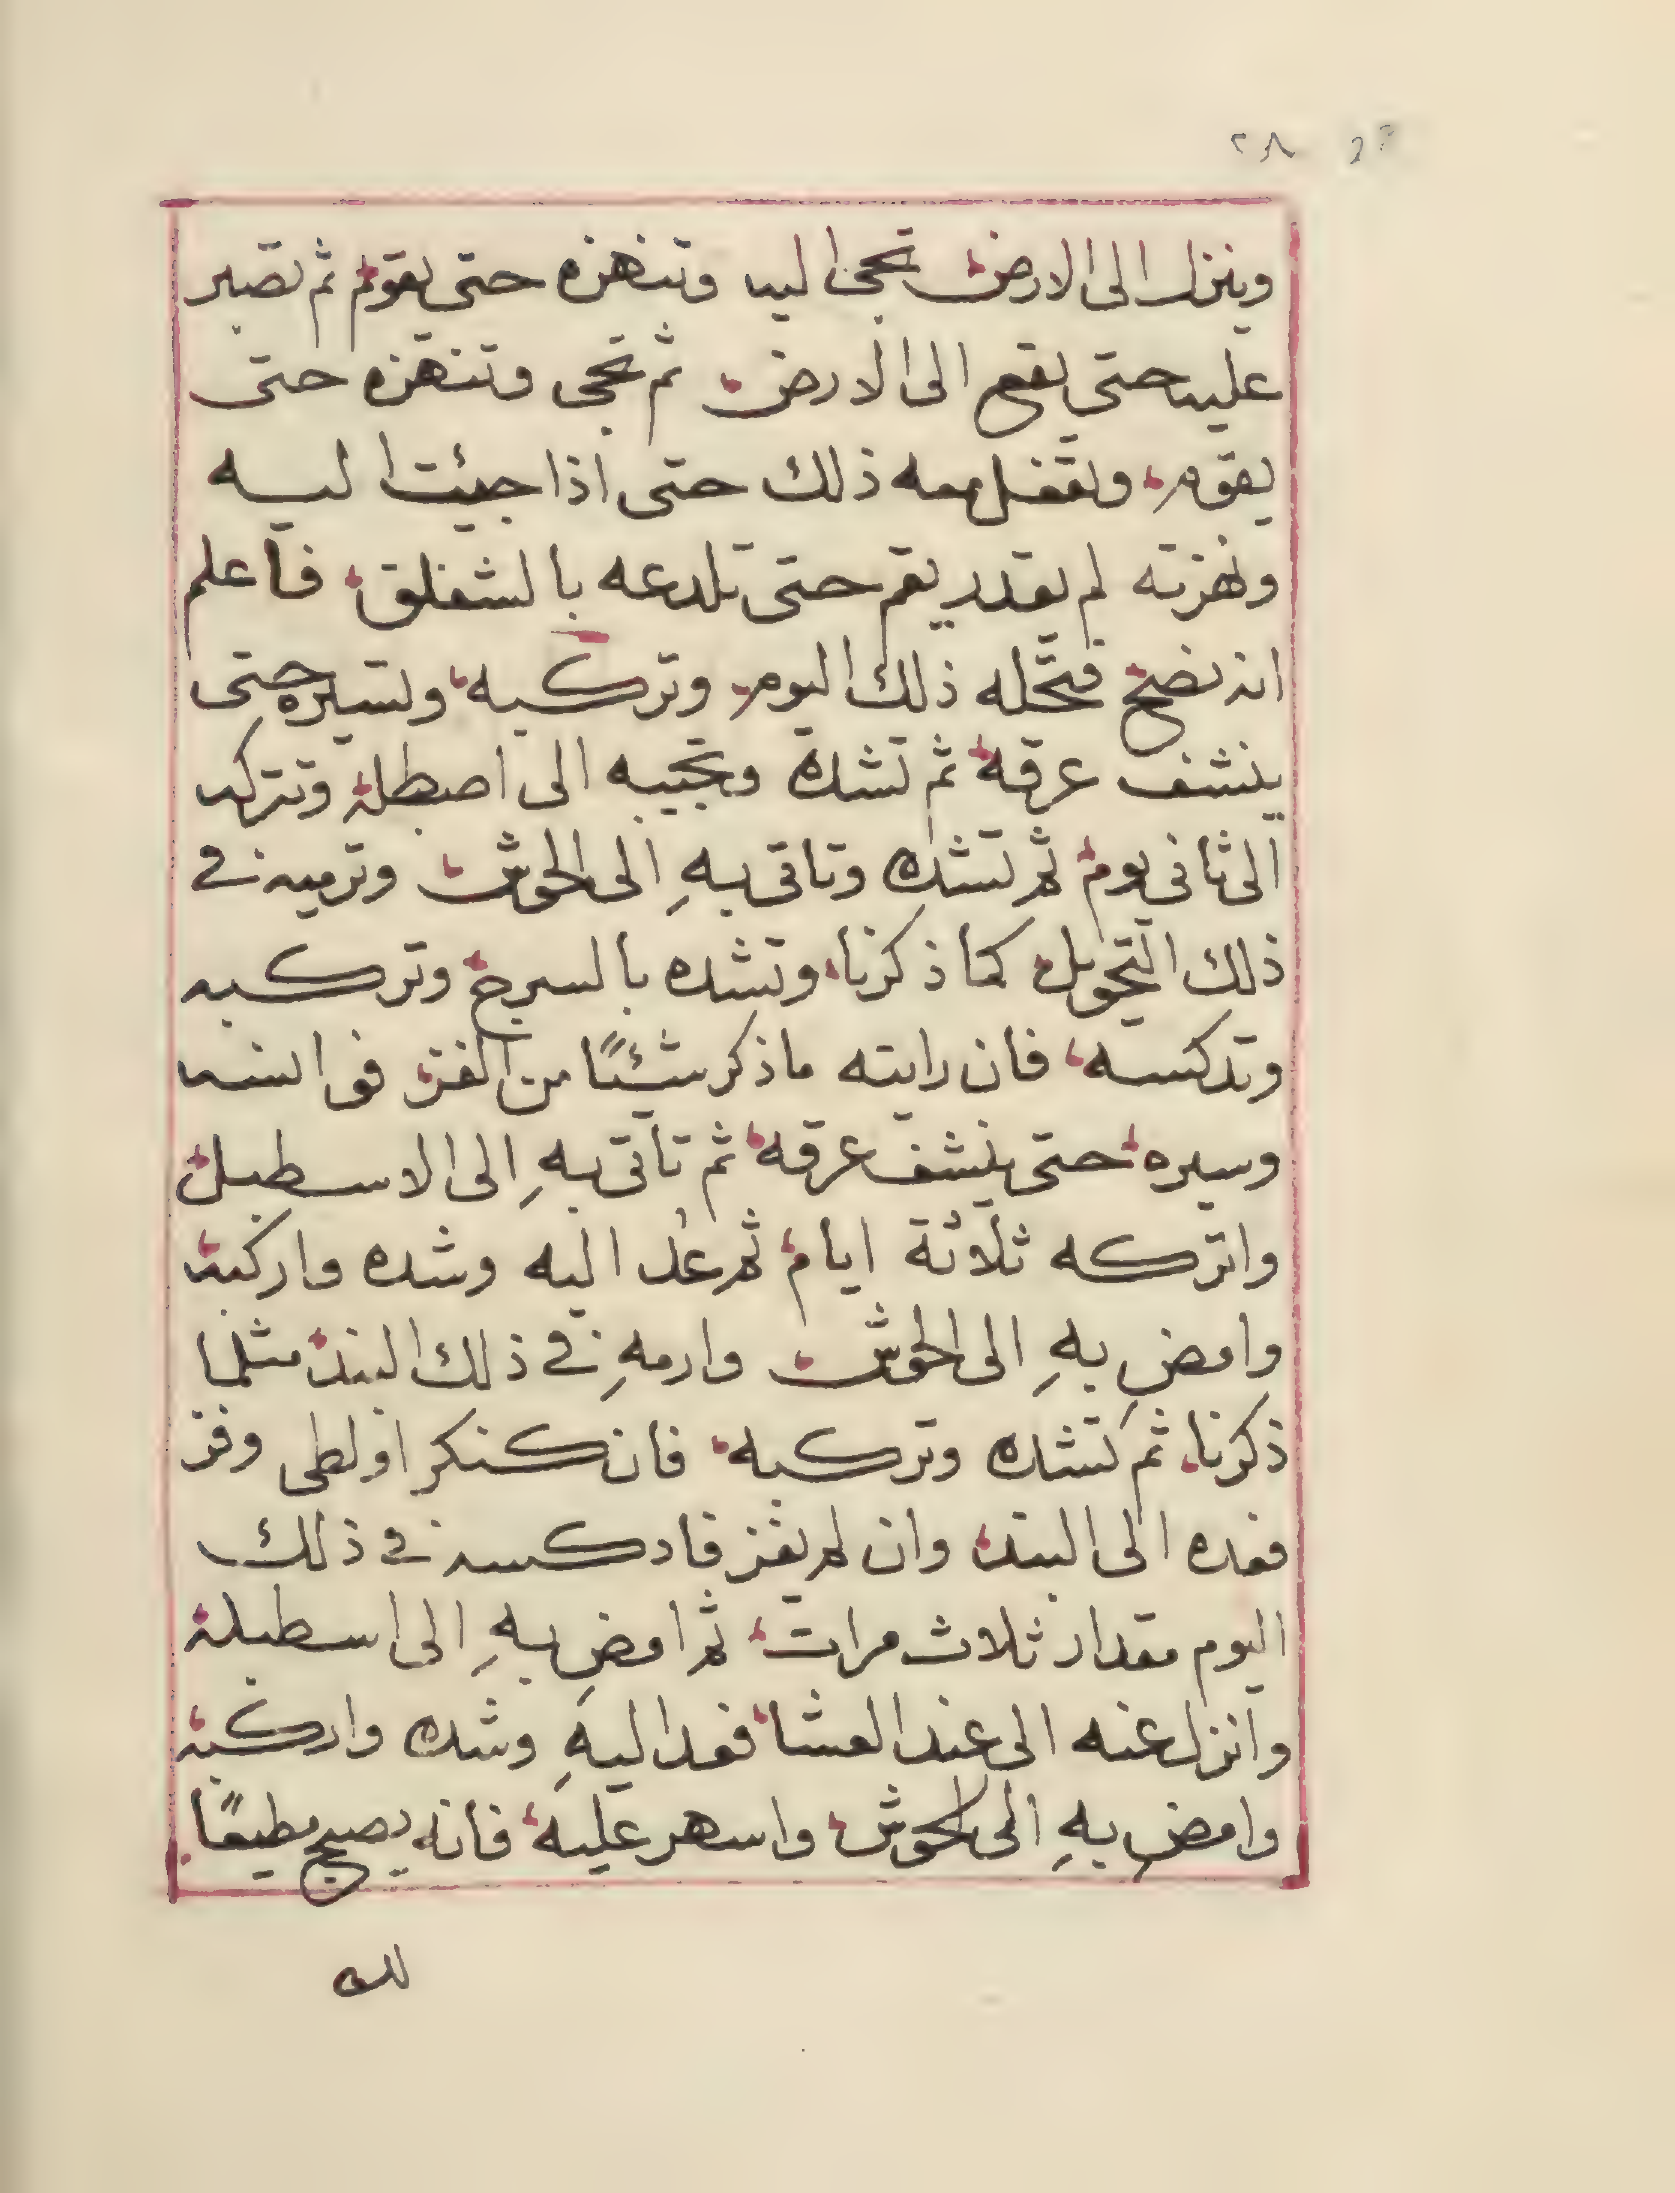 ٢٨
وينزل الى الارض تجى اليه وتنهزه حتى يقوم ثم تصبر
عليه حتى يقع الى الارض ثم تجى وتنهزه حتى
يقوم وتفعل معه ذلك حتى اذا جيئت اليه
ونهزته لم يقدر يقم حتى تلدعه بالشغلق فاعلم
انه نضج فتحله ذلك اليوم وتركبه وتسيره حتى
ينشف عرقه ثم تشده وتجيبه الى اصطبله وتتركه
الى ثانى يوم ثم تشده وتاتى بهِ الى الحوش وترميه فى
ذلك التحويل كما ذكرنا وتشده بالسرج وتركبه
وتدكسه فان رايته ما ذكر شيئًا من الفز فوانسه
وسيره حتى ينشف عرقه ثم تاتى بهِ الى الاسطبل
واتركه ثلاثة ايام ثم عُد اليه وشده واركبه
وامضِ بهِ الى الحوش وارمهِ فى ذلك البند مثلما
ذكرنا ثم تشده وتركبه فان كنكر اولطى وفز
فعده الى البند وان لم يفز فادكسه فى ذلك
اليوم مقدار ثلاث مرات ثم امضِ بهِ الى اسطبله
وانزل عنه الى عند العشا فعد اليهِ وشده واركبه
وامضِ بهِ الى الحوش واسهر عليه فانه يصبح مطيعًا
لك